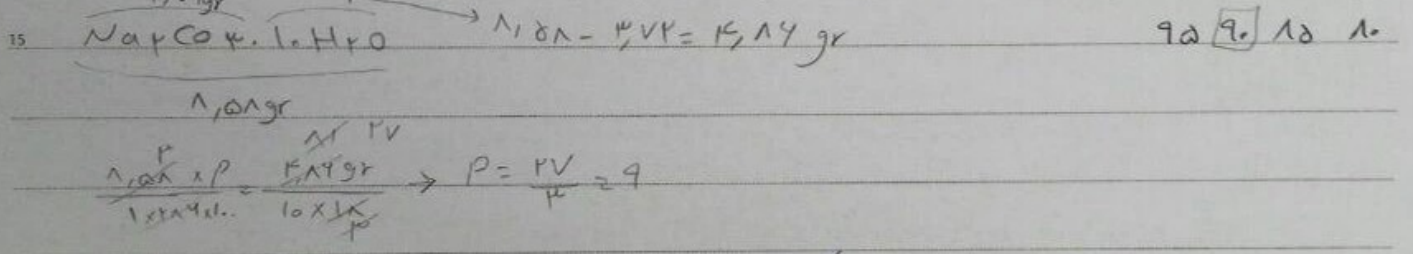 15 Na۲CO۳.۱۰H۲O → ۸,۵۸ - ۳,۷۲ = ۴,۸۶ gr ۹۵ ۹۰ ۸۵ ۸۰
۸,۵۸gr
۳ ۸۱ ۲۷
۸,۵۸ × P / ۱×۲۸۶×۱۰۰ = ۴,۸۶gr / ۱۰×۱۸ → P = ۲۷ / ۳ = ۹
۲